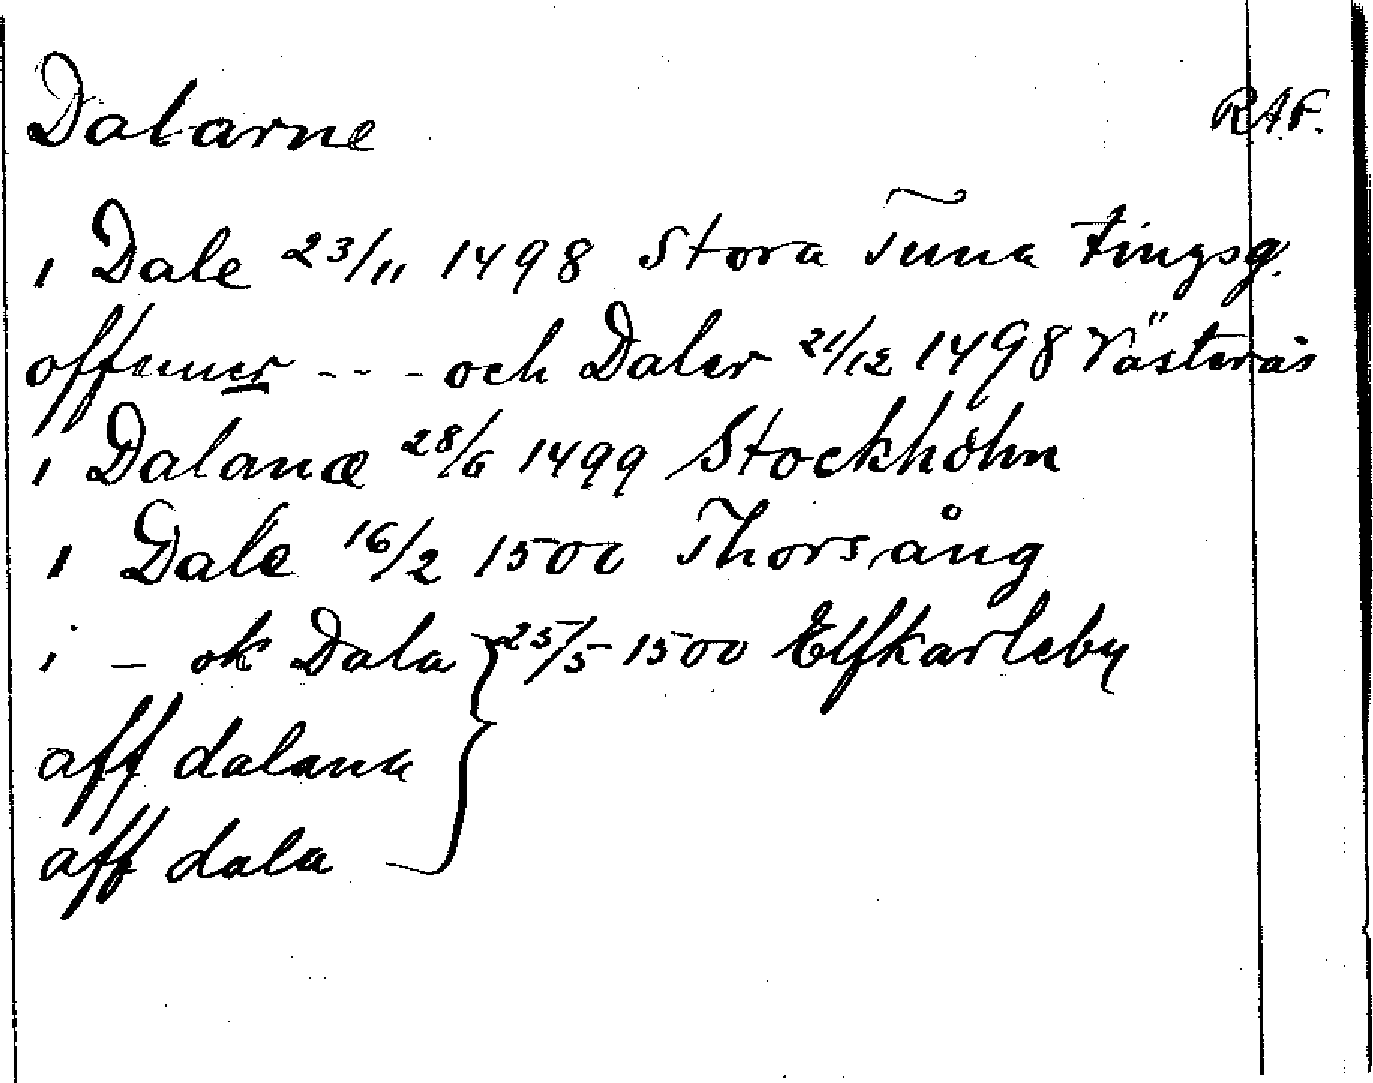 Dalarne R.A.P.
i Dale 23/11 1498 Stora Tuna tingsg.
offuuer - - - och Daler 21/12 1498 Västerås
i Dalanæ 28/6 1499 Stockholm
i Dale 16/2 1500 Thorsång
i – ok Dala } 25/5 1500 Elfkarleby
aff dalana
aff dala